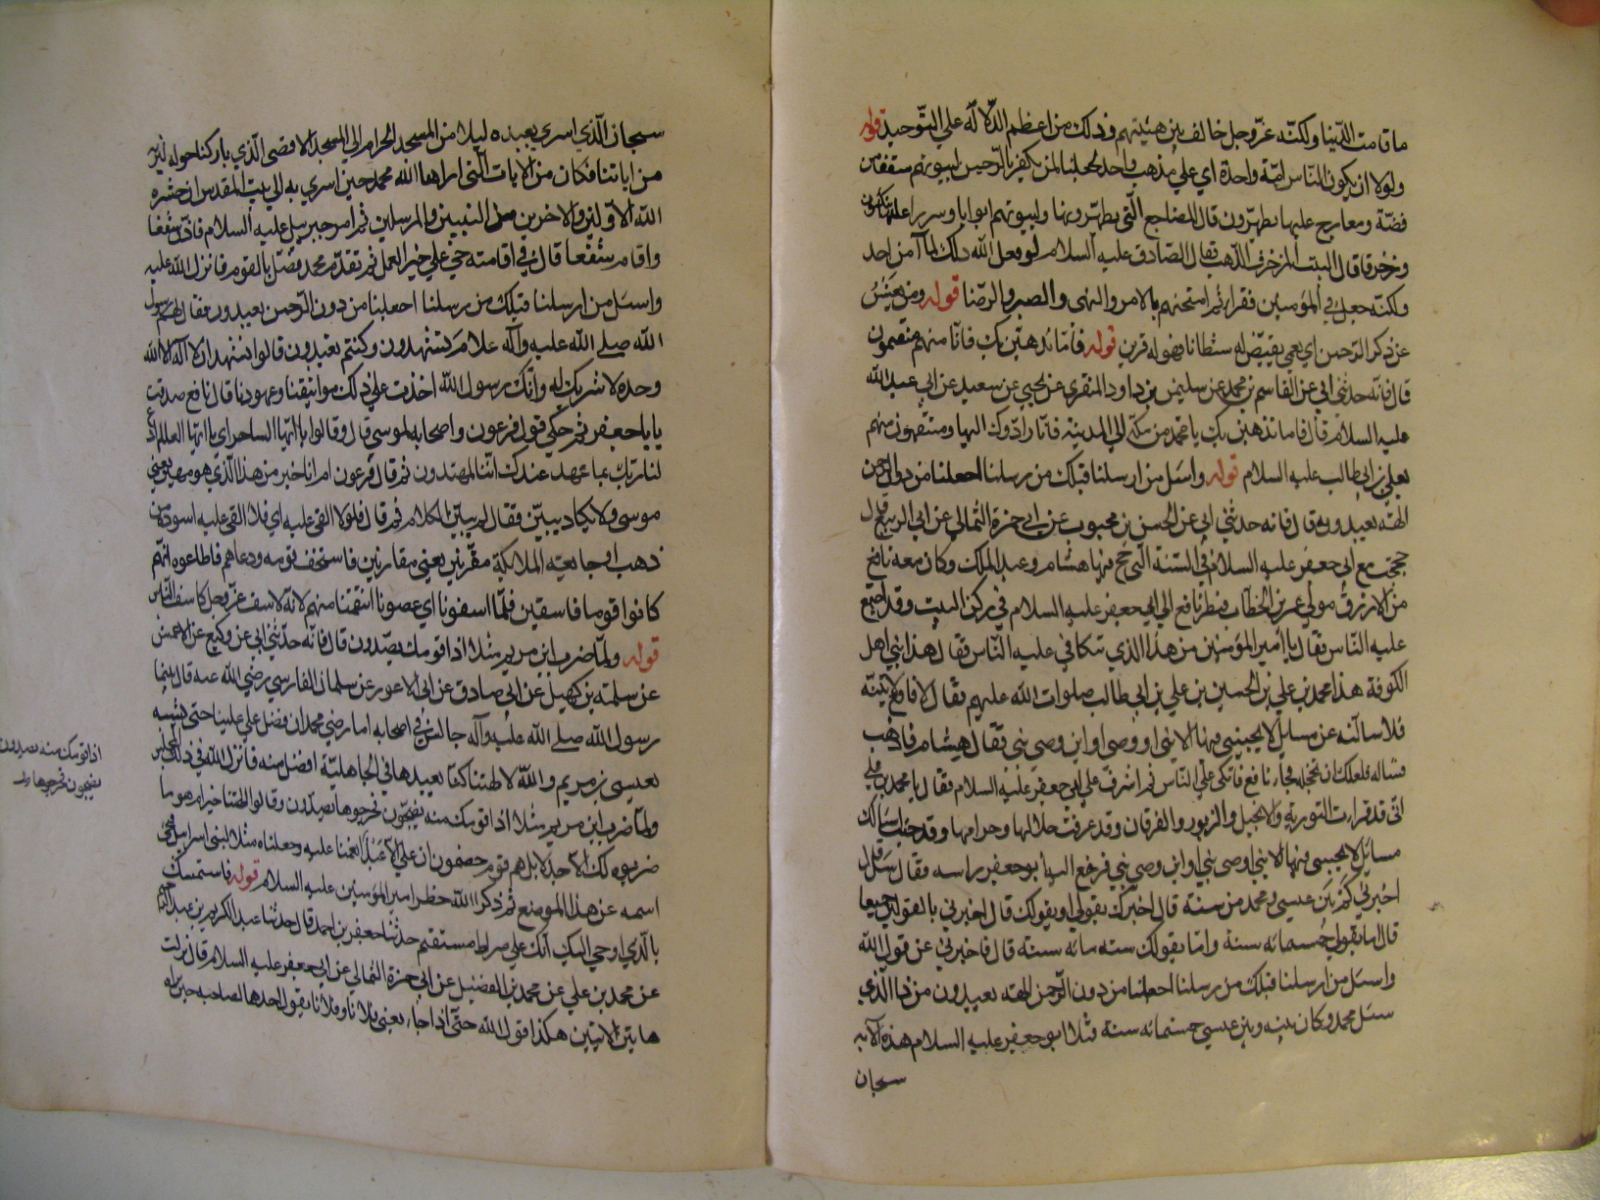 ما قامت الدنيا ولكنه عز وجل خالف بين هيئتهم وذلك من اعظم الدلالة على التوحيد قوله
ولولا ان يكون الناس امة واحدة اي على مذهب واحد لجعلنا لمن يكفر بالرحمن لبيوتهم سقفا من
فضة ومعارج عليها يظهرون قال المضاجع التي يظهرونها ولبيوتهم ابوابا وسررا عليها يتكئون
وزخرفا قال البيت المزخرف الذهب فقال الصادق عليه السلام لو فعل الله ذلك لما آمن احد
ولكنه جعل في المؤمنين فقراء ثم امتحنهم بالامر والنهى والصبر والرضا قوله ومن يعش
عن ذكر الرحمن اي يعمي نقيض له شيطانا فهو له قرين قوله فاما نذهبن بك فانا منهم منتقمون
قال فانه حدثني ابي عن القاسم بن محمد عن سليمن بن داود المنقري عن يحيى عن سعيد عن ابي عبد الله
عليه السلام قال فاما نذهبن بك يا محمد من مكة الى المدينة فانا رادوك اليها ومنتقمون منهم
بعلي بن ابي طالب عليه السلام قوله واسئل من ارسلنا قبلك من رسلنا اجعلنا من دون الرحمن
الهة يعبدون قال فانه حدثني ابي عن الحسن بن محبوب عن ابي حمزة الثمالي عن ابي الربيع قال
حججت مع ابي جعفر عليه السلام في السنة التي حج فيها هشام و عبد الملك وكان معه نافع
من الازرق مولى عمر بن الخطاب فنظر نافع الى ابي جعفر عليه السلام في ركن البيت وقد اجتمع
عليه الناس فقال يا امير المؤمنين من هذا الذي تتكافى عليه الناس فقال هذا نبي اهل
الكوفة هذا محمد بن علي بن الحسين بن علي بن ابي طالب صلوات الله عليهم فقال لا تينه
فلاسالنه عن مسائل لا يجيبني فيها الا نبي او وصي او ابن وصي نبي فقال هشام فاذهب
فسئله فلعلك ان تخجله فجاء نافع فاتكى على الناس ثم اشرف على ابي جعفر عليه السلام فقال يا محمد بن علي
اني قد قراءت التورية والانجيل والزبور والفرقان وقد عرفت حلالها وحرامها وقد جئت اسالك
مسائل لا يجيبني فيها الا نبي او وصي نبي او ابن وصي نبي فرفع اليه ابو جعفر راسه فقال سل قال
اخبرني كم بين عيسى ومحمد من سنة قال اخبرك بقولي او بقولك قال اخبرني بالقولين جميعا
قال اما بقولي خمسمائه سنة واما بقولك سته مائه سنة قال فاخبرني عن قول الله
واسئل من ارسلنا قبلك من رسلنا اجعلنا من دون الرحمن الهة يعبدون من ذا الذي
سئل محمد وكان بينه وبين عيسى خمسمائه سنة فتلا ابو جعفر عليه السلام هذه الآية
سبحان
سبحان الذي اسرى بعبده ليلا من المسجد الحرام الى المسجد الاقصى الذي باركنا حوله لنريه
من اياتنا فكان من الايات التي اراها الله محمد حين اسري به الى بيت المقدس ان حشره
الله الاولين والاخرين من النبيين والمرسلين ثم امر جبرئيل عليه السلام فاذن شفعا
واقام شفعا قال في اقامته حي على خير العمل ثم تقدم محمد فصلى بالقوم فانزل الله عليه
واسئل من ارسلنا قبلك من رسلنا اجعلنا من دون الرحمن يعبدون فقال لهم رسول
الله صلى الله عليه وآله علام تشهدون وكنتم تعبدون قالوا نشهد ان لا اله الا الله
وحده لا شريك له وانك رسول الله اخذت على ذلك مواثيقنا وعهودنا قال نافع صدقت
يا ابا جعفر ثم حكى قول فرعون واصحابه لموسى قال وقالوا يا ايها الساحر اي يا ايها العالم ادع
لنا ربك بما عهد عندك اننا لمهتدون ثم قال فرعون ام انا خير من هذا الذي هو مهين يعني
موسى ولا يكاد يبين فقال لم يبين الكلام ثم قال فلولا القي عليه اي فلا القي عليه اسورة من
ذهب او جاء معه الملائكة مقترنين يعني مقارنين فاستخف قومه ودعاهم فاطاعوه انهم
كانوا قوما فاسقين فلما اسفونا اي عصونا انتقمنا منهم لانه لا يسف عز وجل كاسف الناس
قوله ولما ضرب ابن مريم مثلا اذا قومك يصدون قال فانه حدثني ابي عن وكيع عن الاعمش
عن سلمة بن كهيل عن ابي صادق عن ابي الاعور عن سلمان الفارسي رضي الله عنه قال بينما
رسول الله صلى الله عليه وآله جالس في اصحابه اما رضي محمد ان فضل علي علينا حتى يشبهه
بعيسى بن مريم والله لالهتنا كنا نعبدها في الجاهلية افضل منه فانزل الله في ذلك المجلس
ولما ضرب ابن مريم مثلا اذا قومك منه يضجون نحرجوها يصدون وقالوا الهتنا خير ام هو ما
ضربوه لك الا جدلا بل هم قوم خصمون ان علي الا عبد انعمنا عليه وجعلناه مثلا لبني اسرائيل فمحى
اسمه عن هذا الموضع ثم ذكر الله خطر امير المؤمنين عليه السلام قوله فاستمسك
بالذي اوحي اليك انك على صراط مستقيم حدثنا جعفر بن احمد قال حدثنا عبد الكريم بن عبد الرحيم
عن محمد بن علي عن محمد بن الفضيل عن ابي حمزة الثمالي عن ابي جعفر عليه السلام قال نزلت
هاتين الايتين هكذا قول الله حتى اذا جاء يعني فلانا وفلانا يقول احدهما لصاحبه حين يراه
اذا قومك منه يصدون
يضجون نحرجوها